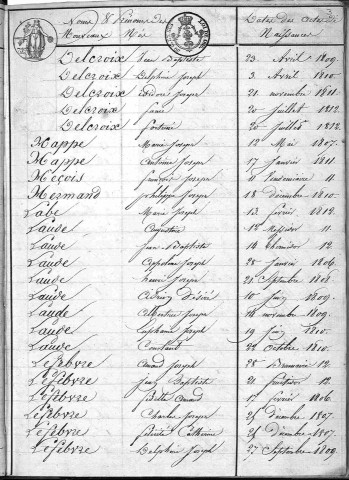 Noms & Prénoms des Nouveaux Nés Dates des Actes de Naissances
Delcroix Jean Baptiste 23 Avril 1809.
Delcroix Delphine Joseph 3 Avril 1810.
Delcroix Désiré Joseph 21 novembre 1811.
Delcroix 20 juillet 1812.
Delcroix 20 juillet 1812.
Happe Marie Joseph 12 Mai 1807.
Happe Antoine Joseph 17 janvier 1811
Hecois Joseph 11 Vendémiaire 14.
Hermand Philippe Joseph 18 décembre 1810.
Labe Marie Joseph 13 février 1812.
Laude Augustin 12 Messidor 11.
Laude Jean Baptiste 14 Thermidor 12.
Laude Joseph 28 janvier 1806.
Laude Henri Joseph 21 Septembre 1808.
Laude 10 juin 1809.
Laude Clementine Joseph 14 novembre 1809.
Laude Euphanie Joseph 19 juin 1810.
Laude Constant 22 Octobre 1810.
Lefebvre Amand Joseph 28 Brumaire 12.
Lefebvre Jean Baptiste 21 fructidor 12.
Lefebvre Amand 17 février 1806.
Lefebvre Charles Joseph 25 décembre 1807.
Lefebvre Félicité Catherine 25 décembre 1807.
Lefebvre Delphin Joseph 27 Septembre 1809.